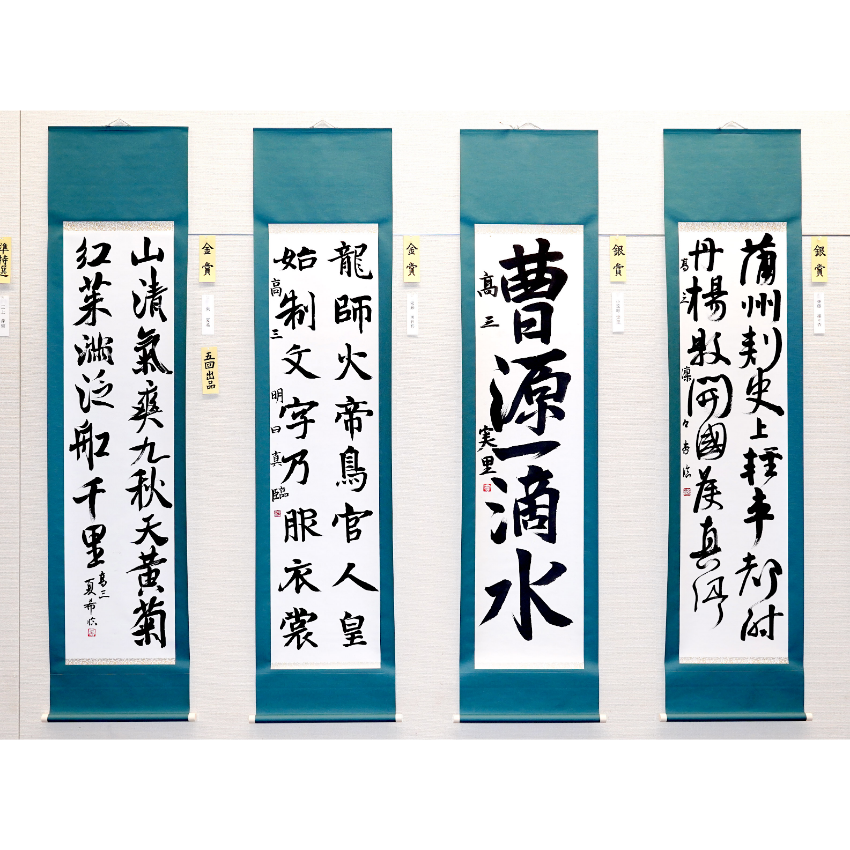 準特選
山清氣爽九秋天黄菊
紅茱滿泛船千里
高三
夏希臨
金賞
五回出品
龍師火帝鳥官人皇
始制文字乃服衣裳
高三 明日真臨
金賞
曹源一滴水
高三 実里
銀賞
蒲州刺史上軽車都尉
丹楊縣開國侯真卿
高三 凜々香臨
銀賞